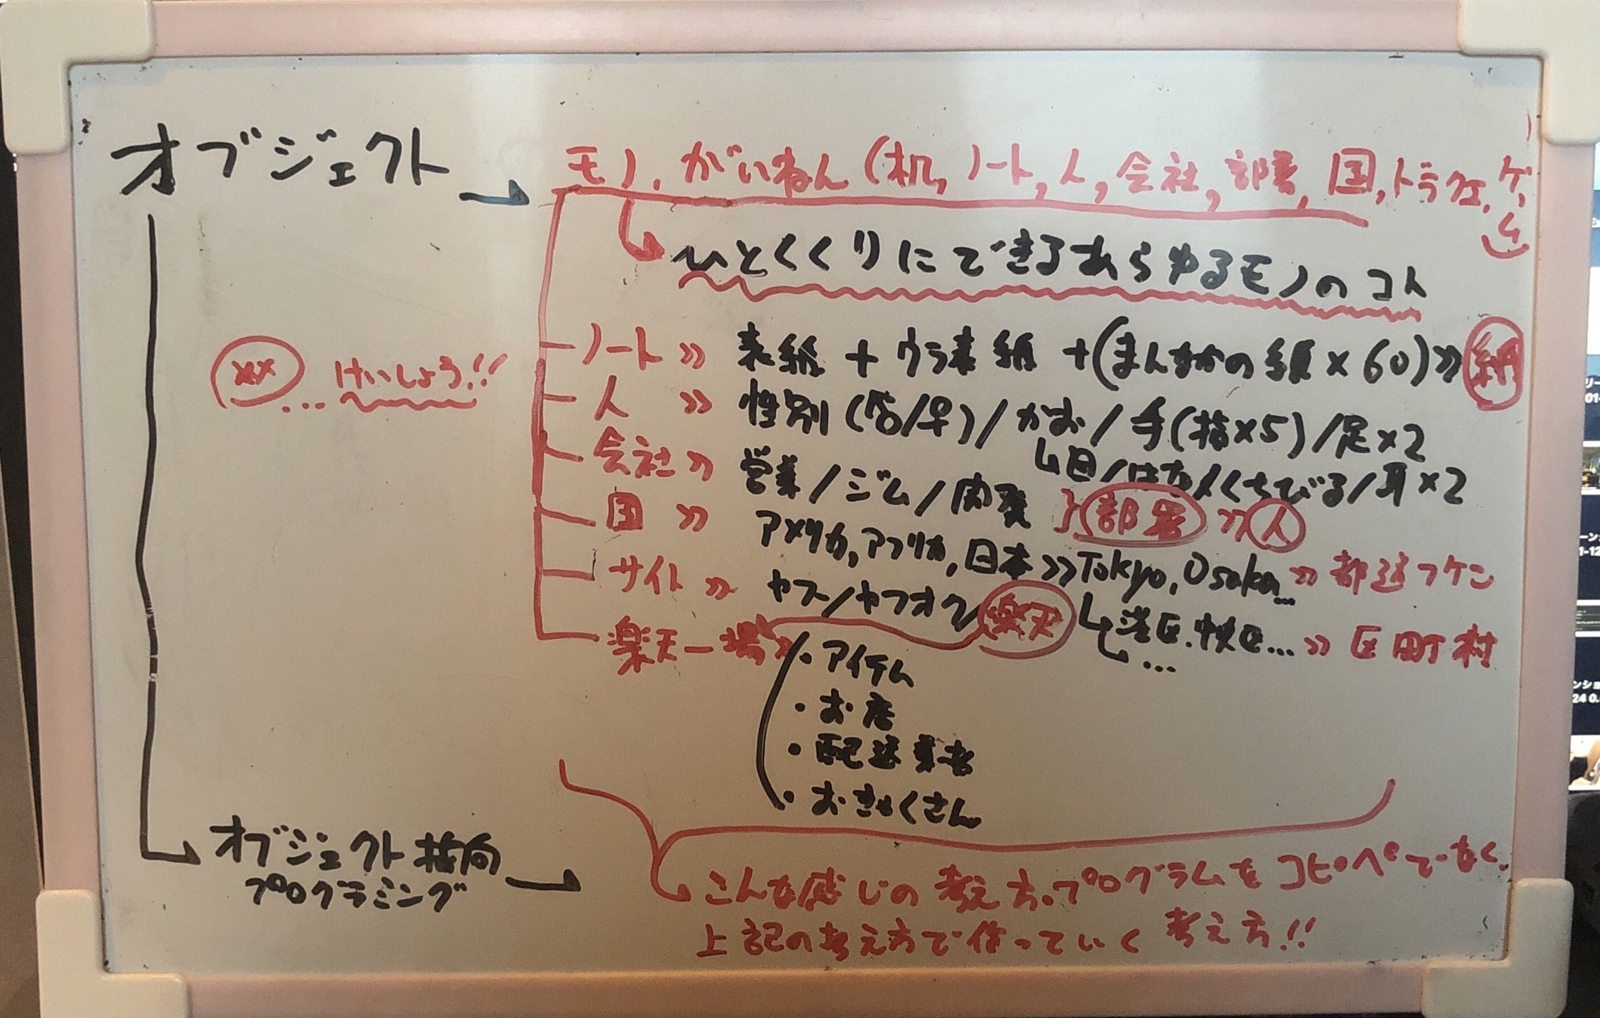 オブジェクト → モノ、がいねん (机, ノート, 人, 会社, 部署, 国, トラクェ, ゲーム)
ひとくくりにできるあらゆるモノのコト
××… けいしょう!!
ノート >> 表紙 + ウラ表紙 + (まんなかの紙 × 60) >> 紙
人 >> 性別 (♂/♀) / かお / 手(指×5) / 足×2
↳目/はな/くちびる/耳×2
会社 >> 営業/ジム/開発 } 部署 >> 人
国 >> アメリカ, アフリカ, 日本 >> Tokyo, Osaka... >> 都道フケン
↳港区. ... >> 区町村
↳...
サイト >> ヤフー/ヤフオク/楽天
楽天一場 >>
・アイテム
・お店
・配送業者
・おきゃくさん
オブジェクト指向
プログラミング →
こんな感じの考え方。プログラムをコピペでなく、
上記の考え方で作っていく考え方!!